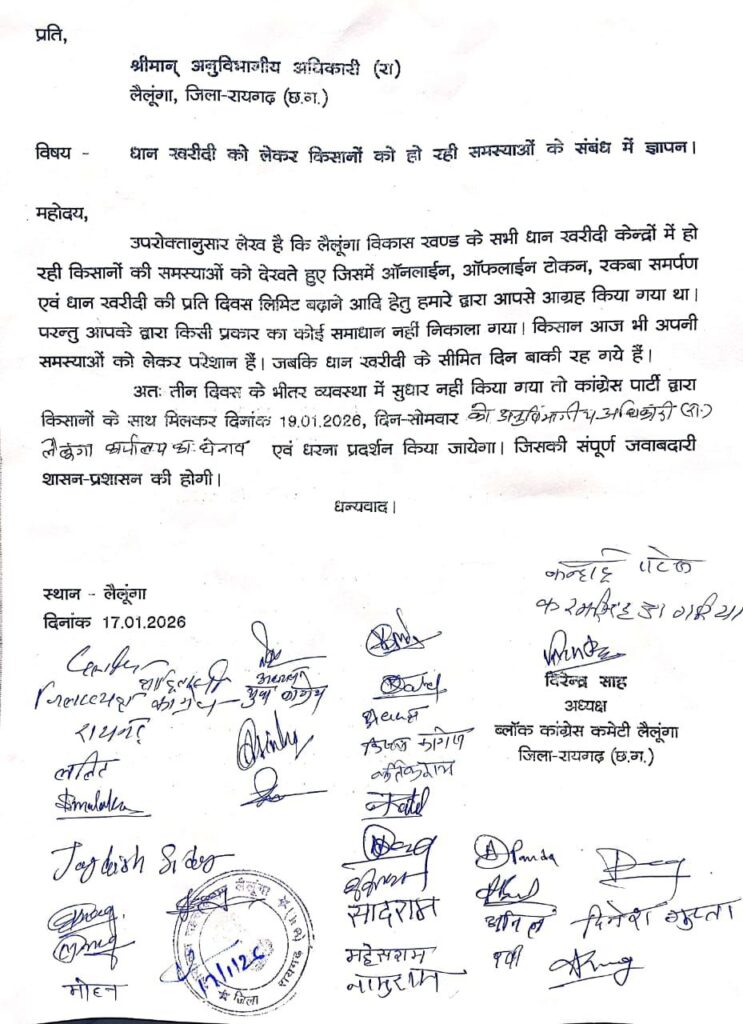 प्रति,
श्रीमान् अनुविभागीय अधिकारी (रा)
लैलूंगा, जिला-रायगढ़ (छ.ग.)
विषय - धान खरीदी को लेकर किसानों को हो रही समस्याओं के संबंध में ज्ञापन।
महोदय,
उपरोक्तानुसार लेख है कि लैलूंगा विकास खण्ड के सभी धान खरीदी केन्द्रों में हो
रही किसानों की समस्याओं को देखते हुए जिसमें ऑनलाईन, ऑफलाईन टोकन, रकबा समर्पण
एवं धान खरीदी की प्रति दिवस लिमिट बढ़ाने आदि हेतु हमारे द्वारा आपसे आग्रह किया गया था।
परन्तु आपके द्वारा किसी प्रकार का कोई समाधान नहीं निकाला गया। किसान आज भी अपनी
समस्याओं को लेकर परेशान हैं। जबकि धान खरीदी के सीमित दिन बाकी रह गये हैं।
अतः तीन दिवस के भीतर व्यवस्था में सुधार नहीं किया गया तो कांग्रेस पार्टी द्वारा
किसानों के साथ मिलकर दिनांक 19.01.2026, दिन-सोमवार को अनुविभागीय अधिकारी (रा.)
लैलूंगा कार्यालय का घेराव एवं धरना प्रदर्शन किया जायेगा। जिसकी संपूर्ण जवाबदारी
शासन-प्रशासन की होगी।
धन्यवाद।
पटेल
स्थान - लैलूंगा
दिनांक 17.01.2026
दिरेन्द्र साह
अध्यक्ष
ब्लॉक कांग्रेस कमेटी लैलूंगा
जिला-रायगढ़ (छ.ग.)
रायगढ़
ललित
Panda
सादराम
दिनेश गुप्ता
महेसराम
मोहन
लैलूंगा
जिला रायगढ़
17/1/26